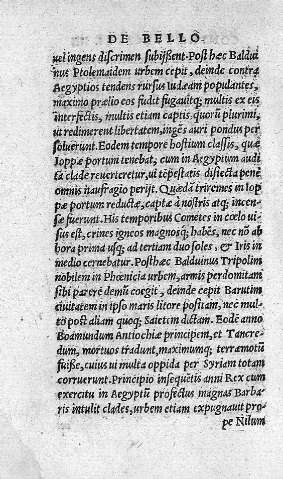 DE BELLO
uel ingens discrimen subijssent. Post hæc Baldui
nus Ptolemaidem urbem cepit, deinde contra
Aegyptios tendens rursus Iudæam populantes,
maximo prælio eos fudit fugauitq; multis ex eis
interfectis, multis etiam captis. quorũ plurimi,
ut redimerent libertatem, ingēs auri pondus per
soluerunt. Eodem tempore hostium classis, quæ
Ioppæ portum tenebat, cum in Aegyptum audi
ta clade reuerteretur, ui tēpestatis disiecta penè
omnis naufragio perijt. Quædã triremes in Iop
pæ portum reductæ, captæ à nostris atq; incen-
sæ fuerunt. His temporibus Cometes in cœlo ui
sus est, crines igneos magnosq; habēs, nec nō ab
hora prima usq; ad tertiam duo soles, & Iris in
medio cernebatur. Posthæc Balduinus Tripolim
nobilem in Phœnicia urbem, armis perdomitam
sibi parere demũ coegit, deinde cepit Barutim
ciuitatem in ipso maris litore positam, nec mul-
tò post aliam quoq; Saietem dictam. Eodē anno
Boamundum Antiochiæ principem, et Tancre-
dum, mortuos tradunt, maximumq; terræmotũ
fuisse, cuius ui multa oppida per Syriam totam
corruerunt. Principio insequētis anni Rex cum
exercitu in Aegyptũ profectus magnas Barba-
ris intulit clades, urbem etiam expugnauit pro-
pe Nilum